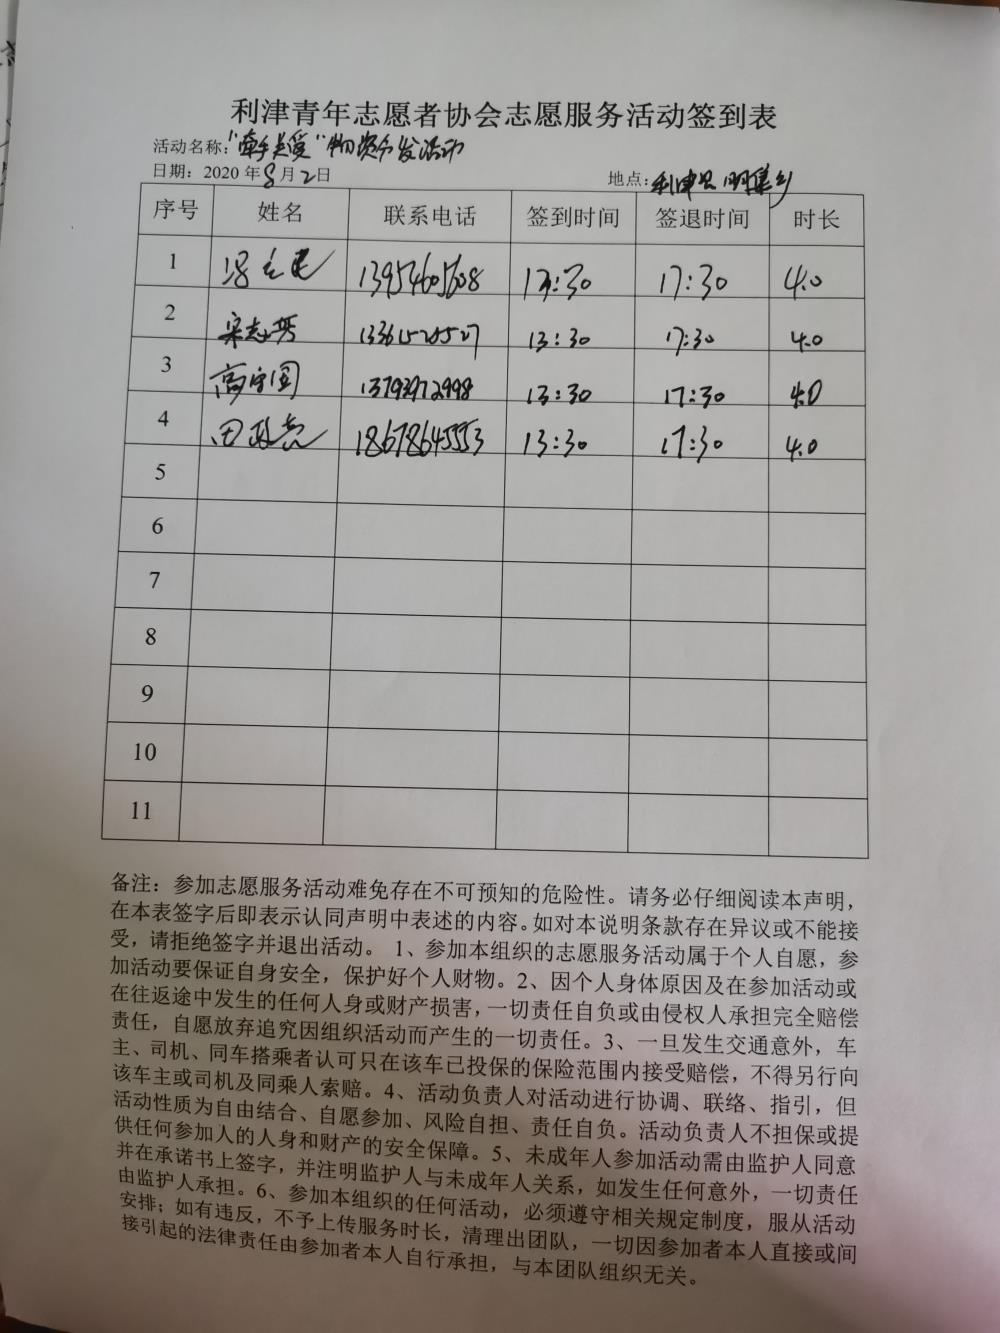 利津青年志愿者协会志愿服务活动签到表
活动名称:“牵手关爱”物资分发活动
日期:2020年8月2日 地点:利津县明集乡
序号 姓名 联系电话 签到时间 签退时间 时长
1 13954605608 13:30 17:30 4.0
2 宋志芳 13361520527 13:30 17:30 4.0
3 高守国 13793972998 13:30 17:30 4.0
4 田政亮 18678645553 13:30 17:30 4.0
5
6
7
8
9
10
11
备注:参加志愿服务活动难免存在不可预知的危险性。请务必仔细阅读本声明,
在本表签字后即表示认同声明中表述的内容。如对本说明条款存在异议或不能接
受,请拒绝签字并退出活动。 1、参加本组织的志愿服务活动属于个人自愿,参
加活动要保证自身安全,保护好个人财物。2、因个人身体原因及在参加活动或
在往返途中发生的任何人身或财产损害,一切责任自负或由侵权人承担完全赔偿
责任,自愿放弃追究因组织活动而产生的一切责任。3、一旦发生交通意外,车
主、司机、同车搭乘者认可只在该车已投保的保险范围内接受赔偿,不得另行向
该车主或司机及同乘人索赔。4、活动负责人对活动进行协调、联络、指引,但
活动性质为自由结合、自愿参加、风险自担、责任自负。活动负责人不担保或提
供任何参加人的人身和财产的安全保障。5、未成年人参加活动需由监护人同意
并在承诺书上签字,并注明监护人与未成年人关系,如发生任何意外,一切责任
由监护人承担。6、参加本组织的任何活动,必须遵守相关规定制度,服从活动
安排;如有违反,不予上传服务时长,清理出团队,一切因参加者本人直接或间
接引起的法律责任由参加者本人自行承担,与本团队组织无关。